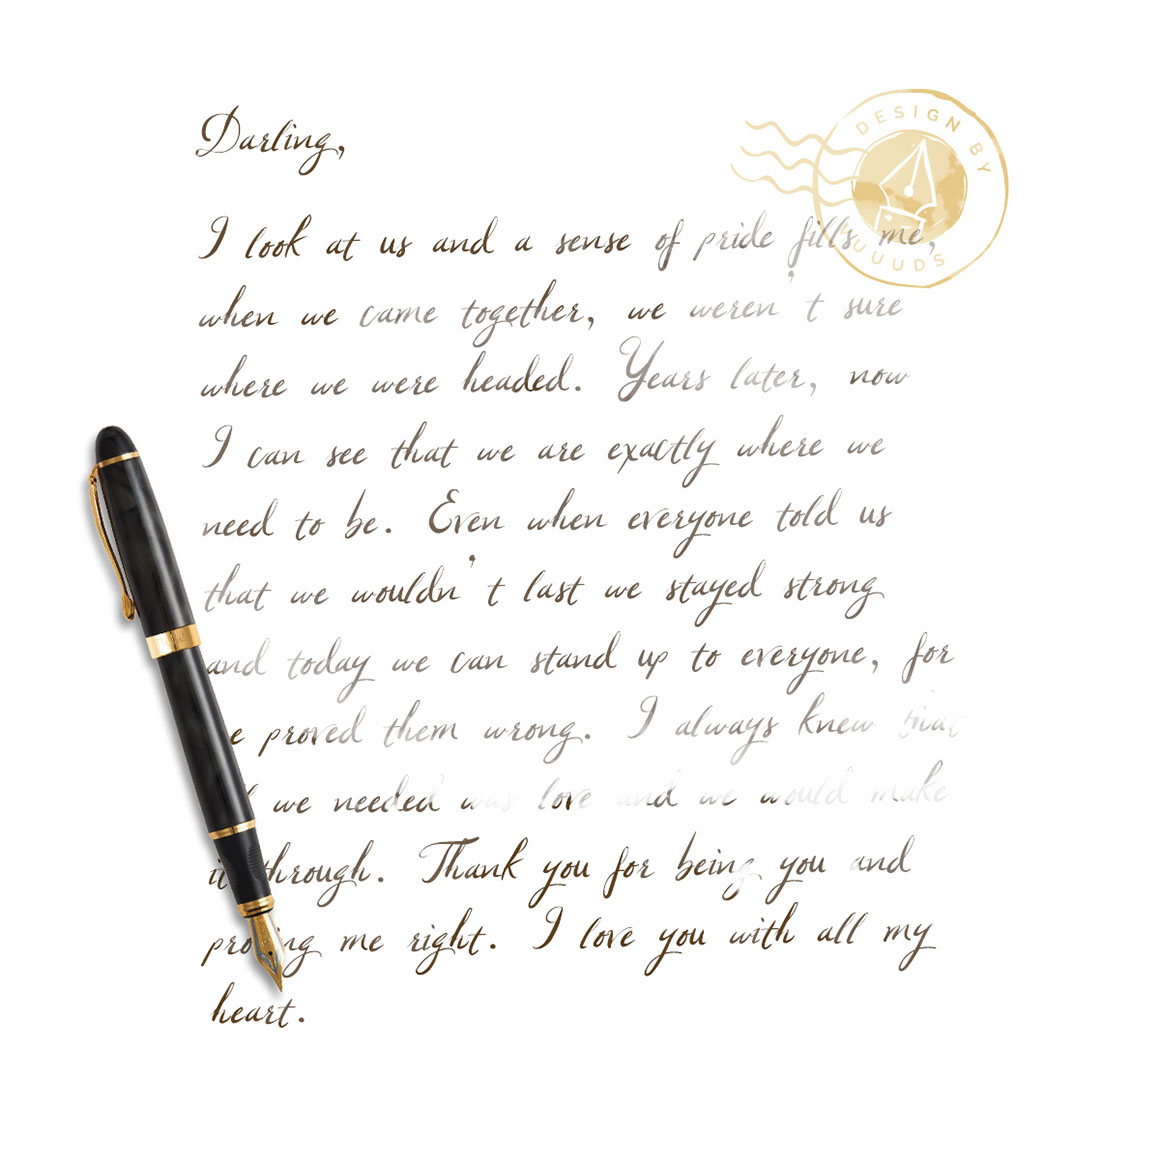 Darling,
DESIGN BY
UUUDS
I look at us and a sense of pride fills me,
when we came together, we weren't sure
where we were headed. Years later, now
I can see that we are exactly where we
need to be. Even when everyone told us
that we wouldn't last we stayed strong
and today we can stand up to everyone, for
e proved them wrong. I always knew that
we needed was love and we would make
it through. Thank you for being you and
proving me right. I love you with all my
heart.